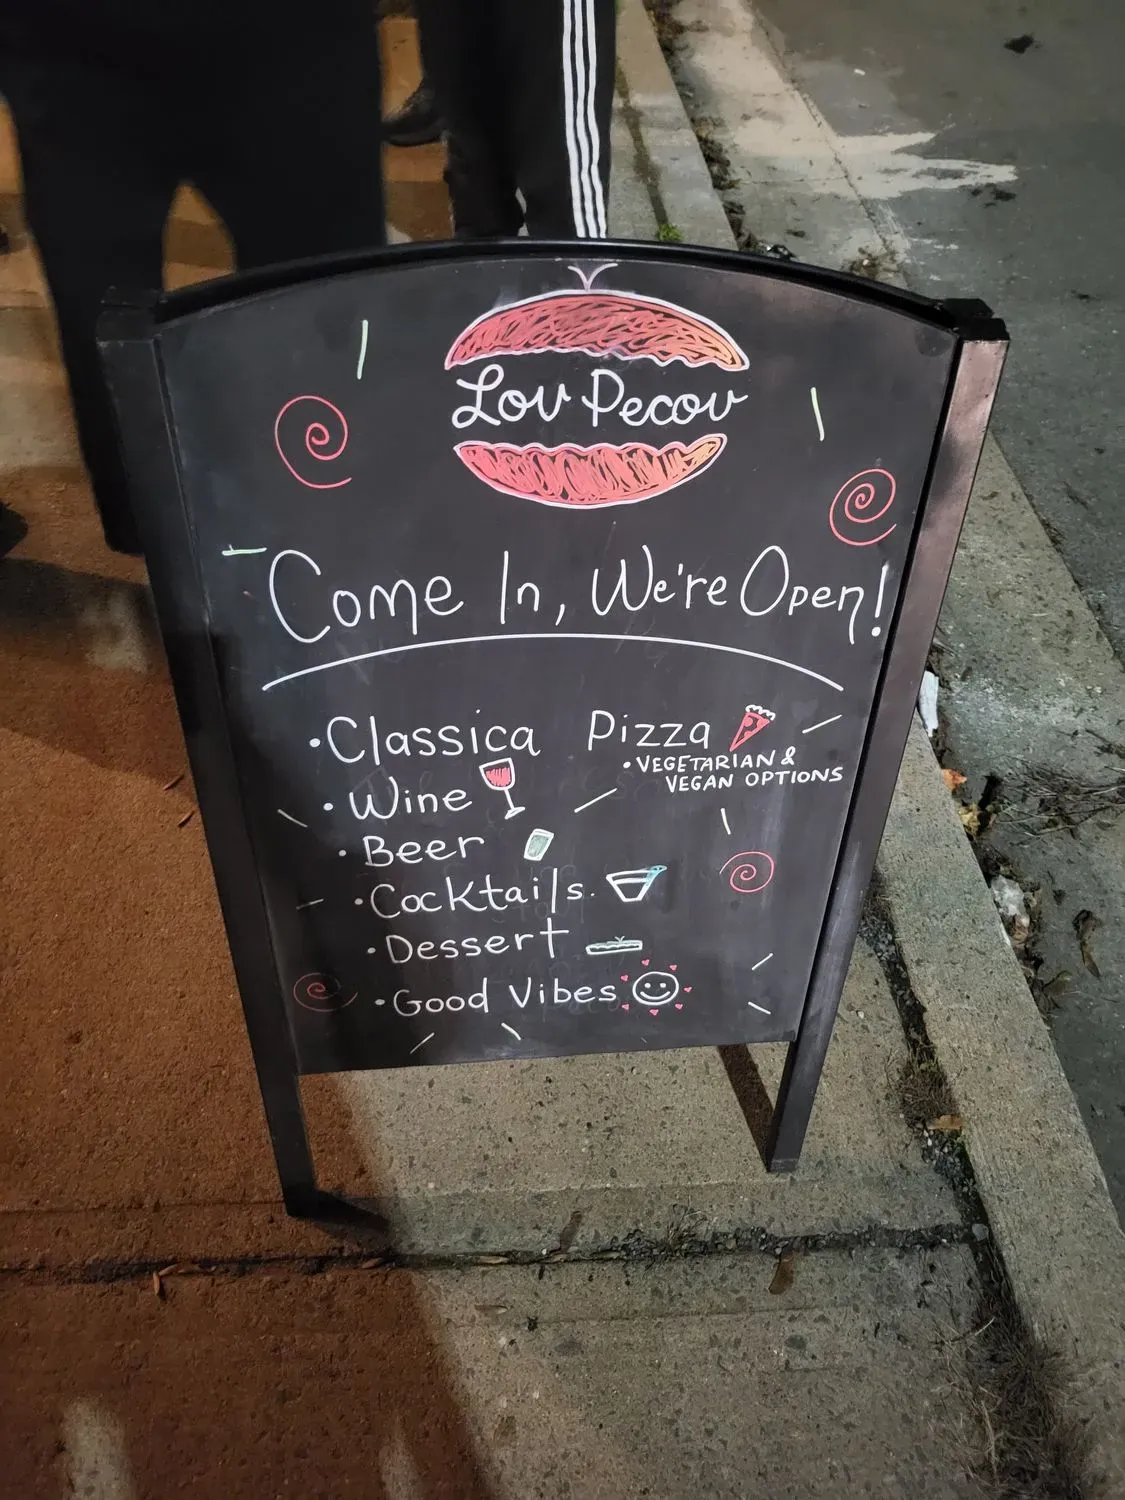 Lov Pecov
Come In, We're Open!
• Classica Pizza
• VEGETARIAN &
VEGAN OPTIONS
• Wine
• Beer
• Cocktails.
• Dessert
• Good Vibes